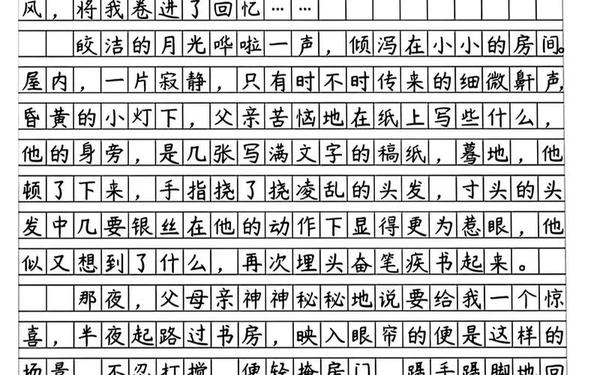 风，将我卷进了回忆……
皎洁的月光哗啦一声，倾泻在小小的房间。
屋内，一片寂静，只有时不时传来的细微鼾声，
昏黄的小灯下，父亲苦恼地在纸上写些什么，
他的身旁，是几张写满文字的稿纸，蓦地，他
顿了下来，手指挠了挠凌乱的头发，寸头的头
发中几要银丝在他的动作下显得更为惹眼，他
似又想到了什么，再次埋头奋笔疾书起来。
那夜，父母亲神神秘秘地说要给我一个惊
喜，半夜起路过书房，映入眼帘的便是这样的
场景，不忍打搅，便轻掩房门，蹑手蹑脚地回